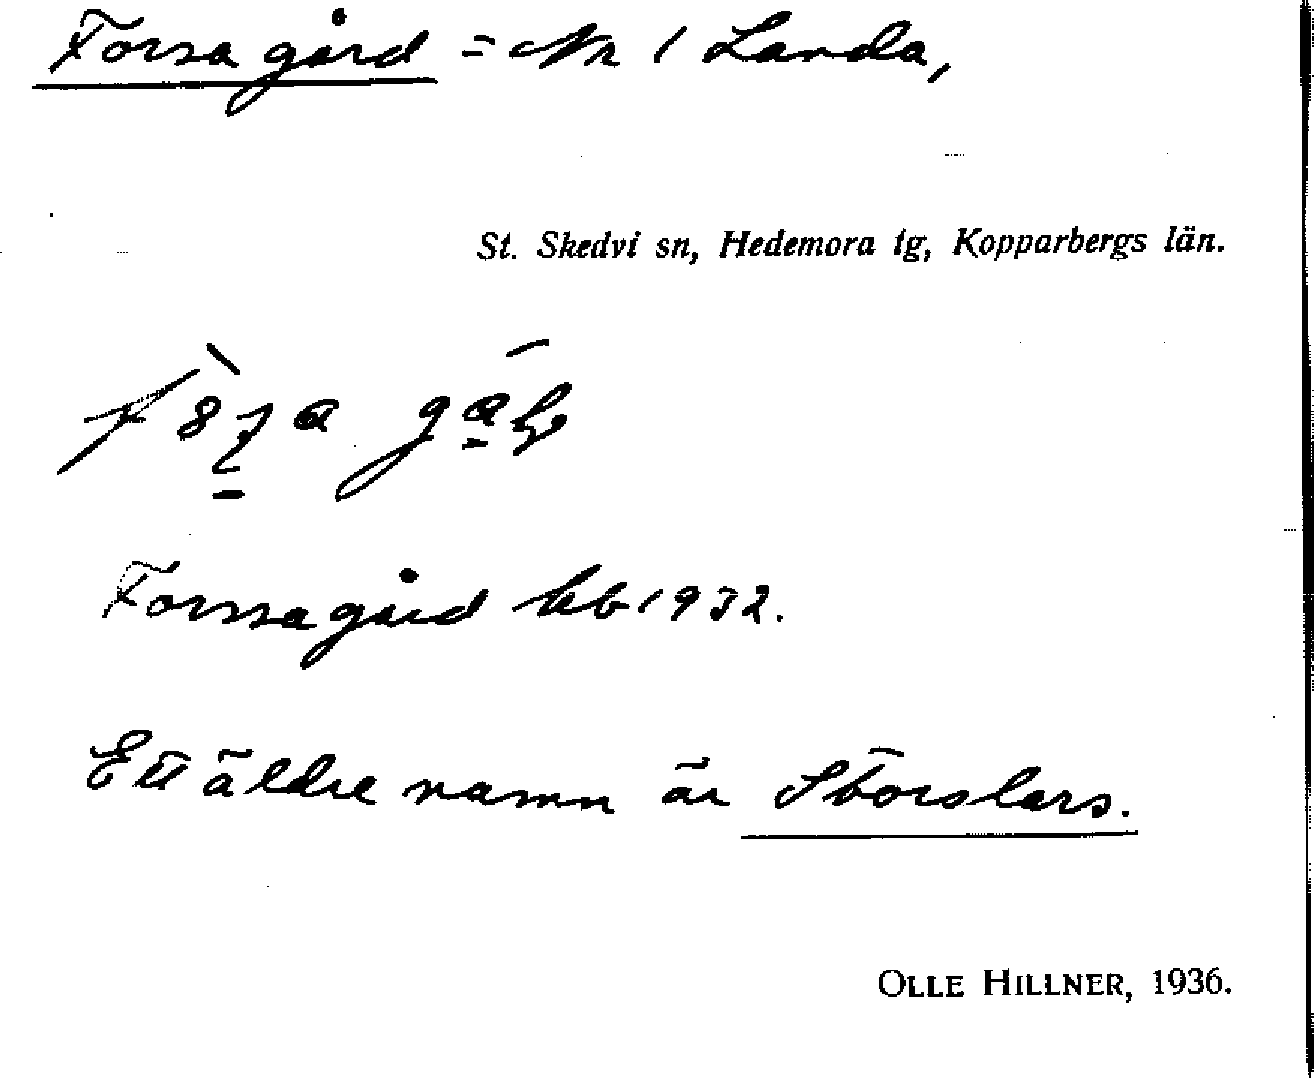 Forsa gård = Nr 1 Landa,
St. Skedvi sn, Hedemora tg, Kopparbergs län.
Forssagård kb 1932.
Ett äldre namn är Storslars.
OLLE HILLNER, 1936.